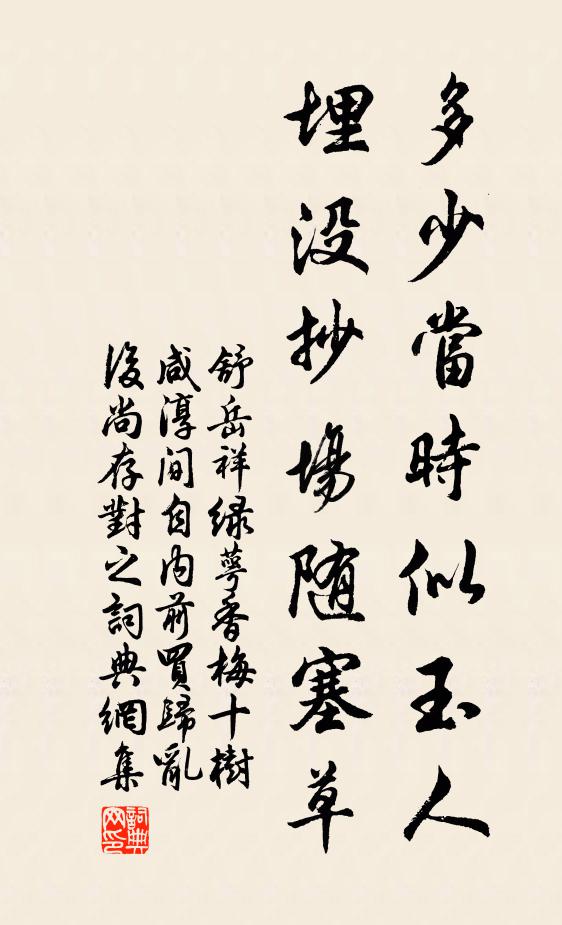 多少當時似玉人
埋没抄場随塞草
舒岳祥緑萼香梅十樹
咸淳间自内前買歸亂
後尚存對之詞典網集
詞典
网印